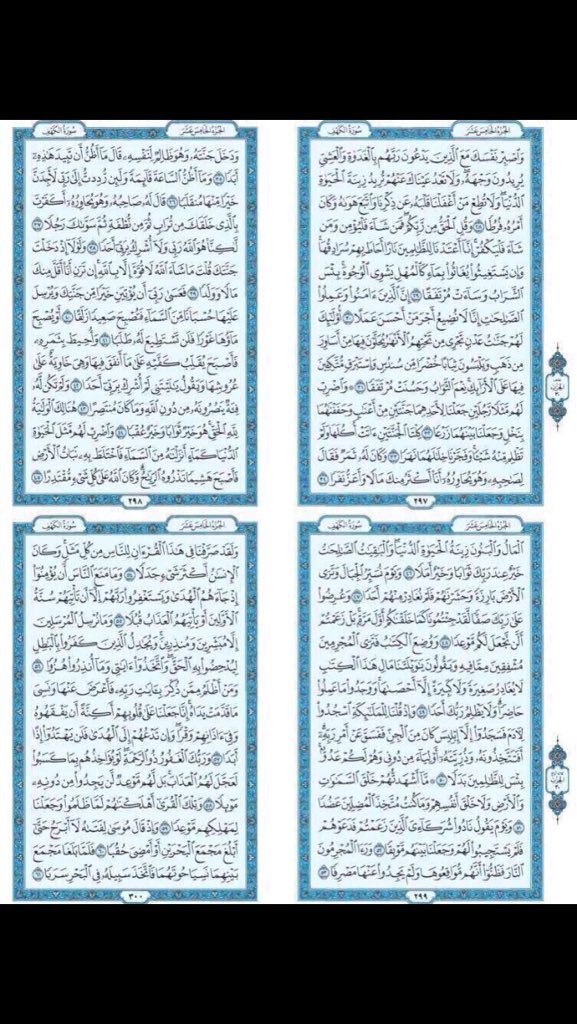 الجزء الخامس عشر
سورة الكهف
وَٱصْبِرْ نَفْسَكَ مَعَ ٱلَّذِينَ يَدْعُونَ رَبَّهُم بِٱلْغَدَوٰةِ وَٱلْعَشِىِّ
يُرِيدُونَ وَجْهَهُۥ وَلَا تَعْدُ عَيْنَاكَ عَنْهُمْ تُرِيدُ زِينَةَ ٱلْحَيَوٰةِ
ٱلدُّنْيَا وَلَا تُطِعْ مَنْ أَغْفَلْنَا قَلْبَهُۥ عَن ذِكْرِنَا وَٱتَّبَعَ هَوَىٰهُ وَكَانَ
أَمْرُهُۥ فُرُطًا ٢٨ وَقُلِ ٱلْحَقُّ مِن رَّبِّكُمْ فَمَن شَآءَ فَلْيُؤْمِن وَمَن
شَآءَ فَلْيَكْفُرْ إِنَّآ أَعْتَدْنَا لِلظَّٰلِمِينَ نَارًا أَحَاطَ بِهِمْ سُرَادِقُهَا
وَإِن يَسْتَغِيثُوا۟ يُغَاثُوا۟ بِمَآءٍ كَٱلْمُهْلِ يَشْوِى ٱلْوُجُوهَ بِئْسَ
ٱلشَّرَابُ وَسَآءَتْ مُرْتَفَقًا ٢٩ إِنَّ ٱلَّذِينَ ءَامَنُوا۟ وَعَمِلُوا۟
ٱلصَّٰلِحَٰتِ إِنَّا لَا نُضِيعُ أَجْرَ مَنْ أَحْسَنَ عَمَلًا ٣٠ أُو۟لَٰٓئِكَ
لَهُمْ جَنَّٰتُ عَدْنٍ تَجْرِى مِن تَحْتِهِمُ ٱلْأَنْهَٰرُ يُحَلَّوْنَ فِيهَا مِنْ أَسَاوِرَ
مِن ذَهَبٍ وَيَلْبَسُونَ ثِيَابًا خُضْرًا مِّن سُندُسٍ وَإِسْتَبْرَقٍ مُّتَّكِـِٔينَ
فِيهَا عَلَى ٱلْأَرَآئِكِ نِعْمَ ٱلثَّوَابُ وَحَسُنَتْ مُرْتَفَقًا ٣١ وَٱضْرِبْ
لَهُم مَّثَلًا رَّجُلَيْنِ جَعَلْنَا لِأَحَدِهِمَا جَنَّتَيْنِ مِنْ أَعْنَٰبٍ وَحَفَفْنَٰهُمَا
بِنَخْلٍ وَجَعَلْنَا بَيْنَهُمَا زَرْعًا ٣٢ كِلْتَا ٱلْجَنَّتَيْنِ ءَاتَتْ أُكُلَهَا وَلَمْ
تَظْلِم مِّنْهُ شَيْـًٔا وَفَجَّرْنَا خِلَٰلَهُمَا نَهَرًا ٣٣ وَكَانَ لَهُۥ ثَمَرٌ فَقَالَ
لِصَٰحِبِهِۦ وَهُوَ يُحَاوِرُهُۥٓ أَنَا۠ أَكْثَرُ مِنكَ مَالًا وَأَعَزُّ نَفَرًا ٣٤
٢٩٧
الجزء الخامس عشر
سورة الكهف
وَدَخَلَ جَنَّتَهُۥ وَهُوَ ظَالِمٌ لِّنَفْسِهِۦ قَالَ مَآ أَظُنُّ أَن تَبِيدَ هَٰذِهِۦٓ
أَبَدًا ٣٥ وَمَآ أَظُنُّ ٱلسَّاعَةَ قَآئِمَةً وَلَئِن رُّدِدتُّ إِلَىٰ رَبِّى لَأَجِدَنَّ
خَيْرًا مِّنْهَا مُنقَلَبًا ٣٦ قَالَ لَهُۥ صَاحِبُهُۥ وَهُوَ يُحَاوِرُهُۥٓ أَكَفَرْتَ
بِٱلَّذِى خَلَقَكَ مِن تُرَابٍ ثُمَّ مِن نُّطْفَةٍ ثُمَّ سَوَّىٰكَ رَجُلًا ٣٧
لَّٰكِنَّا۠ هُوَ ٱللَّهُ رَبِّى وَلَآ أُشْرِكُ بِرَبِّىٓ أَحَدًا ٣٨ وَلَوْلَآ إِذْ دَخَلْتَ
جَنَّتَكَ قُلْتَ مَا شَآءَ ٱللَّهُ لَا قُوَّةَ إِلَّا بِٱللَّهِ إِن تَرَنِ أَنَا۠ أَقَلَّ مِنكَ
مَالًا وَوَلَدًا ٣٩ فَعَسَىٰ رَبِّىٓ أَن يُؤْتِيَنِ خَيْرًا مِّن جَنَّتِكَ وَيُرْسِلَ
عَلَيْهَا حُسْبَانًا مِّنَ ٱلسَّمَآءِ فَتُصْبِحَ صَعِيدًا زَلَقًا ٤٠ أَوْ يُصْبِحَ
مَآؤُهَا غَوْرًا فَلَن تَسْتَطِيعَ لَهُۥ طَلَبًا ٤١ وَأُحِيطَ بِثَمَرِهِۦ
فَأَصْبَحَ يُقَلِّبُ كَفَّيْهِ عَلَىٰ مَآ أَنفَقَ فِيهَا وَهِىَ خَاوِيَةٌ عَلَىٰ
عُرُوشِهَا وَيَقُولُ يَٰلَيْتَنِى لَمْ أُشْرِكْ بِرَبِّىٓ أَحَدًا ٤٢ وَلَمْ تَكُن لَّهُۥ
فِئَةٌ يَنصُرُونَهُۥ مِن دُونِ ٱللَّهِ وَمَا كَانَ مُنتَصِرًا ٤٣ هُنَالِكَ ٱلْوَلَٰيَةُ
لِلَّهِ ٱلْحَقِّ هُوَ خَيْرٌ ثَوَابًا وَخَيْرٌ عُقْبًا ٤٤ وَٱضْرِبْ لَهُم مَّثَلَ ٱلْحَيَوٰةِ
ٱلدُّنْيَا كَمَآءٍ أَنزَلْنَٰهُ مِنَ ٱلسَّمَآءِ فَٱخْتَلَطَ بِهِۦ نَبَاتُ ٱلْأَرْضِ
فَأَصْبَحَ هَشِيمًا تَذْرُوهُ ٱلرِّيَٰحُ وَكَانَ ٱللَّهُ عَلَىٰ كُلِّ شَىْءٍ مُّقْتَدِرًا ٤٥
٢٩٨
الجزء الخامس عشر
سورة الكهف
ٱلْمَالُ وَٱلْبَنُونَ زِينَةُ ٱلْحَيَوٰةِ ٱلدُّنْيَا وَٱلْبَٰقِيَٰتُ ٱلصَّٰلِحَٰتُ
خَيْرٌ عِندَ رَبِّكَ ثَوَابًا وَخَيْرٌ أَمَلًا ٤٦ وَيَوْمَ نُسَيِّرُ ٱلْجِبَالَ وَتَرَى
ٱلْأَرْضَ بَارِزَةً وَحَشَرْنَٰهُمْ فَلَمْ نُغَادِرْ مِنْهُمْ أَحَدًا ٤٧ وَعُرِضُوا۟
عَلَىٰ رَبِّكَ صَفًّا لَّقَدْ جِئْتُمُونَا كَمَا خَلَقْنَٰكُمْ أَوَّلَ مَرَّةٍۭ بَلْ زَعَمْتُمْ
أَلَّن نَّجْعَلَ لَكُم مَّوْعِدًا ٤٨ وَوُضِعَ ٱلْكِتَٰبُ فَتَرَى ٱلْمُجْرِمِينَ
مُشْفِقِينَ مِمَّا فِيهِ وَيَقُولُونَ يَٰوَيْلَتَنَا مَالِ هَٰذَا ٱلْكِتَٰبِ
لَا يُغَادِرُ صَغِيرَةً وَلَا كَبِيرَةً إِلَّآ أَحْصَىٰهَا وَوَجَدُوا۟ مَا عَمِلُوا۟
حَاضِرًا وَلَا يَظْلِمُ رَبُّكَ أَحَدًا ٤٩ وَإِذْ قُلْنَا لِلْمَلَٰٓئِكَةِ ٱسْجُدُوا۟
لِـَٔادَمَ فَسَجَدُوٓا۟ إِلَّآ إِبْلِيسَ كَانَ مِنَ ٱلْجِنِّ فَفَسَقَ عَنْ أَمْرِ رَبِّهِۦٓ
أَفَتَتَّخِذُونَهُۥ وَذُرِّيَّتَهُۥٓ أَوْلِيَآءَ مِن دُونِى وَهُمْ لَكُمْ عَدُوٌّۢ
بِئْسَ لِلظَّٰلِمِينَ بَدَلًا ٥٠ مَّآ أَشْهَدتُّهُمْ خَلْقَ ٱلسَّمَٰوَٰتِ
وَٱلْأَرْضِ وَلَا خَلْقَ أَنفُسِهِمْ وَمَا كُنتُ مُتَّخِذَ ٱلْمُضِلِّينَ عَضُدًا
٥١ وَيَوْمَ يَقُولُ نَادُوا۟ شُرَكَآءِىَ ٱلَّذِينَ زَعَمْتُمْ فَدَعَوْهُمْ
فَلَمْ يَسْتَجِيبُوا۟ لَهُمْ وَجَعَلْنَا بَيْنَهُم مَّوْبِقًا ٥٢ وَرَءَا ٱلْمُجْرِمُونَ
ٱلنَّارَ فَظَنُّوٓا۟ أَنَّهُم مُّوَاقِعُوهَا وَلَمْ يَجِدُوا۟ عَنْهَا مَصْرِفًا ٥٣
٢٩٩
الجزء الخامس عشر
سورة الكهف
وَلَقَدْ صَرَّفْنَا فِى هَٰذَا ٱلْقُرْءَانِ لِلنَّاسِ مِن كُلِّ مَثَلٍ وَكَانَ
ٱلْإِنسَٰنُ أَكْثَرَ شَىْءٍ جَدَلًا ٥٤ وَمَا مَنَعَ ٱلنَّاسَ أَن يُؤْمِنُوٓا۟
إِذْ جَآءَهُمُ ٱلْهُدَىٰ وَيَسْتَغْفِرُوا۟ رَبَّهُمْ إِلَّآ أَن تَأْتِيَهُمْ سُنَّةُ
ٱلْأَوَّلِينَ أَوْ يَأْتِيَهُمُ ٱلْعَذَابُ قُبُلًا ٥٥ وَمَا نُرْسِلُ ٱلْمُرْسَلِينَ
إِلَّا مُبَشِّرِينَ وَمُنذِرِينَ وَيُجَٰدِلُ ٱلَّذِينَ كَفَرُوا۟ بِٱلْبَٰطِلِ
لِيُدْحِضُوا۟ بِهِ ٱلْحَقَّ وَٱتَّخَذُوٓا۟ ءَايَٰتِى وَمَآ أُنذِرُوا۟ هُزُوًا ٥٦
وَمَنْ أَظْلَمُ مِمَّن ذُكِّرَ بِـَٔايَٰتِ رَبِّهِۦ فَأَعْرَضَ عَنْهَا وَنَسِىَ
مَا قَدَّمَتْ يَدَاهُ إِنَّا جَعَلْنَا عَلَىٰ قُلُوبِهِمْ أَكِنَّةً أَن يَفْقَهُوهُ
وَفِىٓ ءَاذَانِهِمْ وَقْرًا وَإِن تَدْعُهُمْ إِلَى ٱلْهُدَىٰ فَلَن يَهْتَدُوٓا۟ إِذًا
أَبَدًا ٥٧ وَرَبُّكَ ٱلْغَفُورُ ذُو ٱلرَّحْمَةِ لَوْ يُؤَاخِذُهُم بِمَا كَسَبُوا۟
لَعَجَّلَ لَهُمُ ٱلْعَذَابَ بَل لَّهُم مَّوْعِدٌ لَّن يَجِدُوا۟ مِن دُونِهِۦ
مَوْئِلًا ٥٨ وَتِلْكَ ٱلْقُرَىٰٓ أَهْلَكْنَٰهُمْ لَمَّا ظَلَمُوا۟ وَجَعَلْنَا
لِمَهْلِكِهِم مَّوْعِدًا ٥٩ وَإِذْ قَالَ مُوسَىٰ لِفَتَىٰهُ لَآ أَبْرَحُ حَتَّىٰٓ
أَبْلُغَ مَجْمَعَ ٱلْبَحْرَيْنِ أَوْ أَمْضِىَ حُقُبًا ٦٠ فَلَمَّا بَلَغَا مَجْمَعَ
بَيْنِهِمَا نَسِيَا حُوتَهُمَا فَٱتَّخَذَ سَبِيلَهُۥ فِى ٱلْبَحْرِ سَرَبًا ٦١
٣٠٠